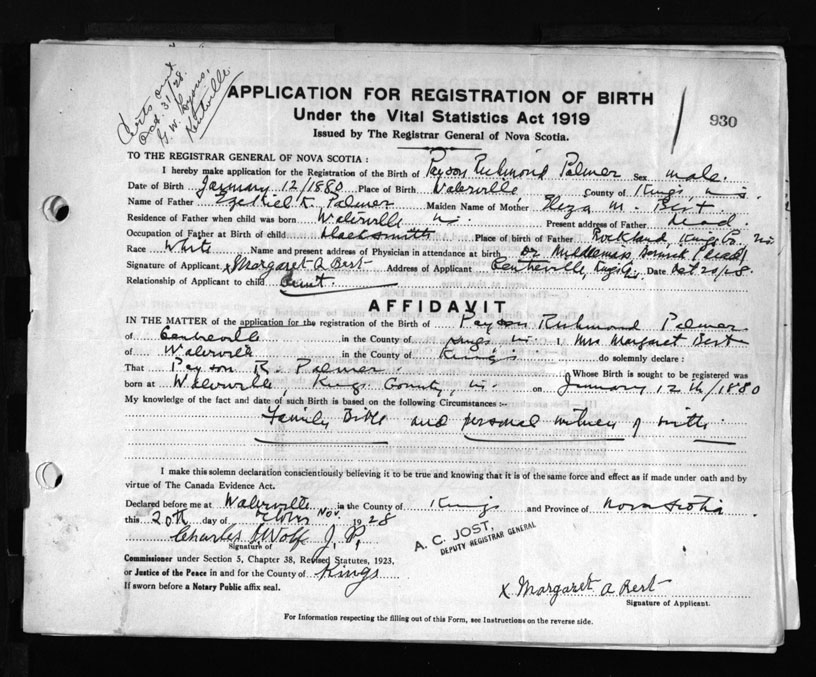 Certs out
Oct 31/28.
G. W. Lyons,
Kentville
APPLICATION FOR REGISTRATION OF BIRTH
Under the Vital Statistics Act 1919
Issued by The Registrar General of Nova Scotia.
930
TO THE REGISTRAR GENERAL OF NOVA SCOTIA :
I hereby make application for the Registration of the Birth of Payson Richmond Palmer Sex male.
Date of Birth January 12/1880 Place of Birth Waterville County of Kings, N.S.
Name of Father Ezekiel K. Palmer Maiden Name of Mother Eliza M. Best
Residence of Father when child was born Waterville N.S. Present address of Father Dead.
Occupation of Father at Birth of child blacksmith Place of birth of Father Rockland, Kings Co. N.S.
Race White Name and present address of Physician in attendance at birth Dr. Middlemas, Berwick (Dead)
Signature of Applicant x Margaret A Best Address of Applicant Centreville, Kings Co. Date Oct 20/28.
Relationship of Applicant to child Aunt.
AFFIDAVIT
IN THE MATTER of the application for the registration of the Birth of Payson Richmond Palmer
of Centreville in the County of Kings N.S. I, Mrs Margaret Best
of Waterville in the County of Kings do solemnly declare :
That Payson R. Palmer Whose Birth is sought to be registered was
born at Waterville, Kings County, N.S. on January 12th/1880
My knowledge of the fact and date of such Birth is based on the following Circumstances :-
Family Bible and personal witness of birth
I make this solemn declaration conscientiously believing it to be true and knowing that it is of the same force and effect as if made under oath and by
virtue of The Canada Evidence Act.
Declared before me at Waterville in the County of Kings and Province of Nova Scotia
this 20th day of October Nov. 1928
Charles Wolfe J. P.
Signature of
A. C. JOST,
DEPUTY REGISTRAR GENERAL
Commissioner under Section 5, Chapter 38, Revised Statutes, 1923.
or Justice of the Peace in and for the County of Kings
If sworn before a Notary Public affix seal.
x Margaret A Best
Signature of Applicant.
For Information respecting the filling out of this Form, see Instructions on the reverse side.